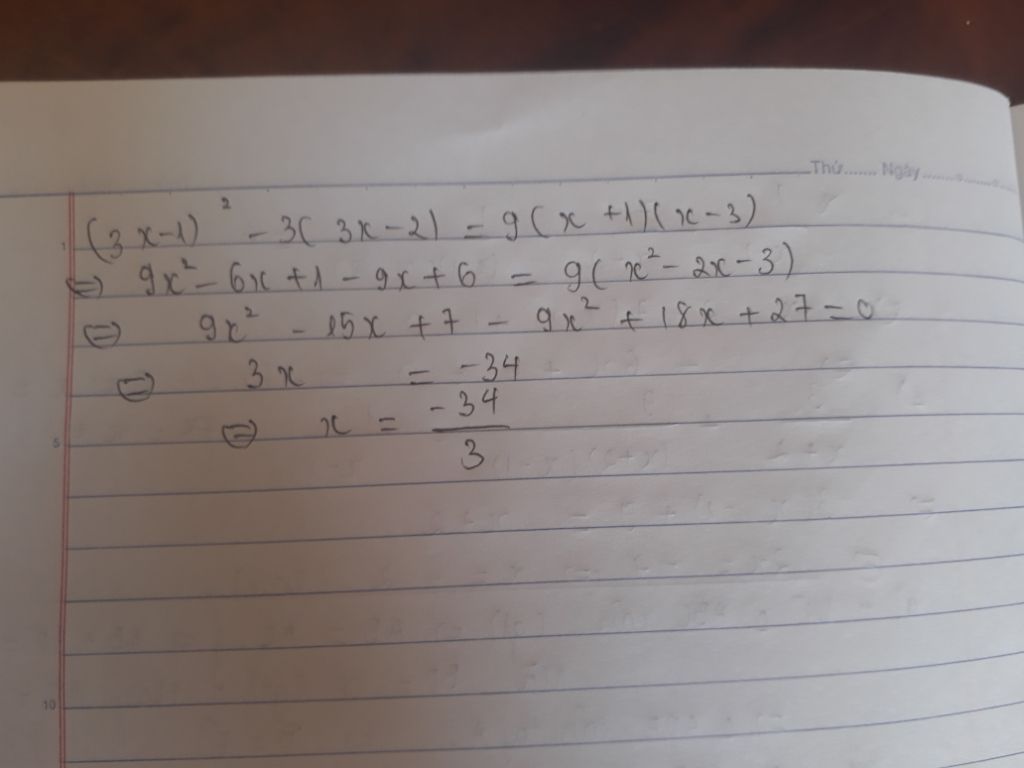 Thứ....... Ngày...........
1 (3x-1)² - 3(3x-2) = 9(x+1)(x-3)
⇔ 9x² - 6x + 1 - 9x + 6 = 9(x² - 2x - 3)
⇔ 9x² - 15x + 7 - 9x² + 18x + 27 = 0
⇔ 3x = -34
5 ⇔ x = -34/3
10